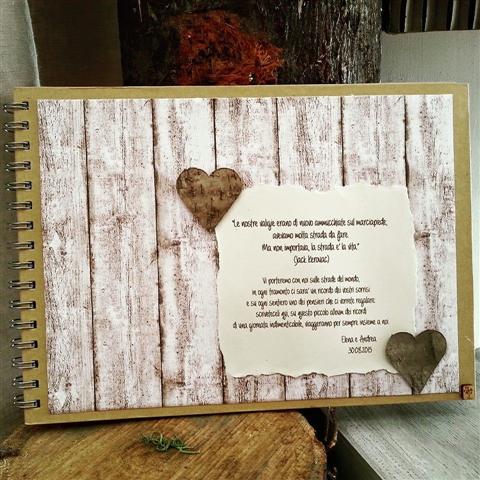 "Le nostre valigie erano di nuovo ammucchiate sul marciapiede,
avevamo molta strada da fare.
Ma non importava, la strada e' la vita."
(Jack Kerouac)
Vi porteremo con noi sulle strade del mondo,
in ogni tramonto ci sara' un ricordo dei vostri sorrisi
e su ogni sentiero uno dei pensieri che ci vorrete regalare
scriveteceli qui, su questo piccolo album dei ricordi
di una giornata indimenticabile, viaggeranno per sempre insieme a noi.
Elena e Andrea
30.08.2015